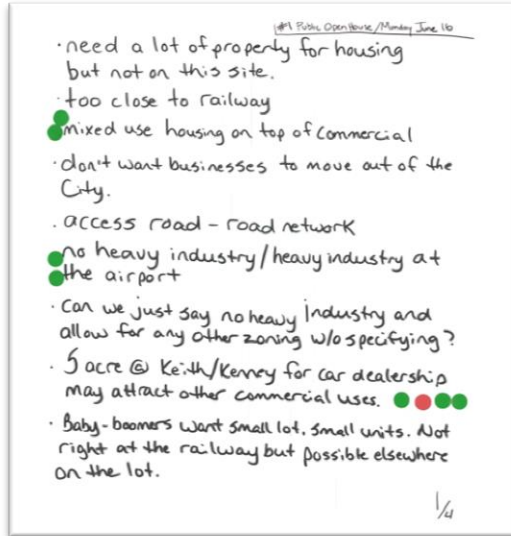 #1 Public Open House/Monday June 16
· need a lot of property for housing
but not on this site.
· too close to railway
mixed use housing on top of commercial
· don't want businesses to move out of the
City.
· access road - road network
no heavy industry/heavy industry at
the airport
· Can we just say no heavy industry and
allow for any other zoning w/o specifying?
· 5 acre @ Keith/Kenney for car dealership
may attract other commercial uses.
· Baby-boomers want small lot, small units. Not
right at the railway but possible elsewhere
on the lot.
1/4